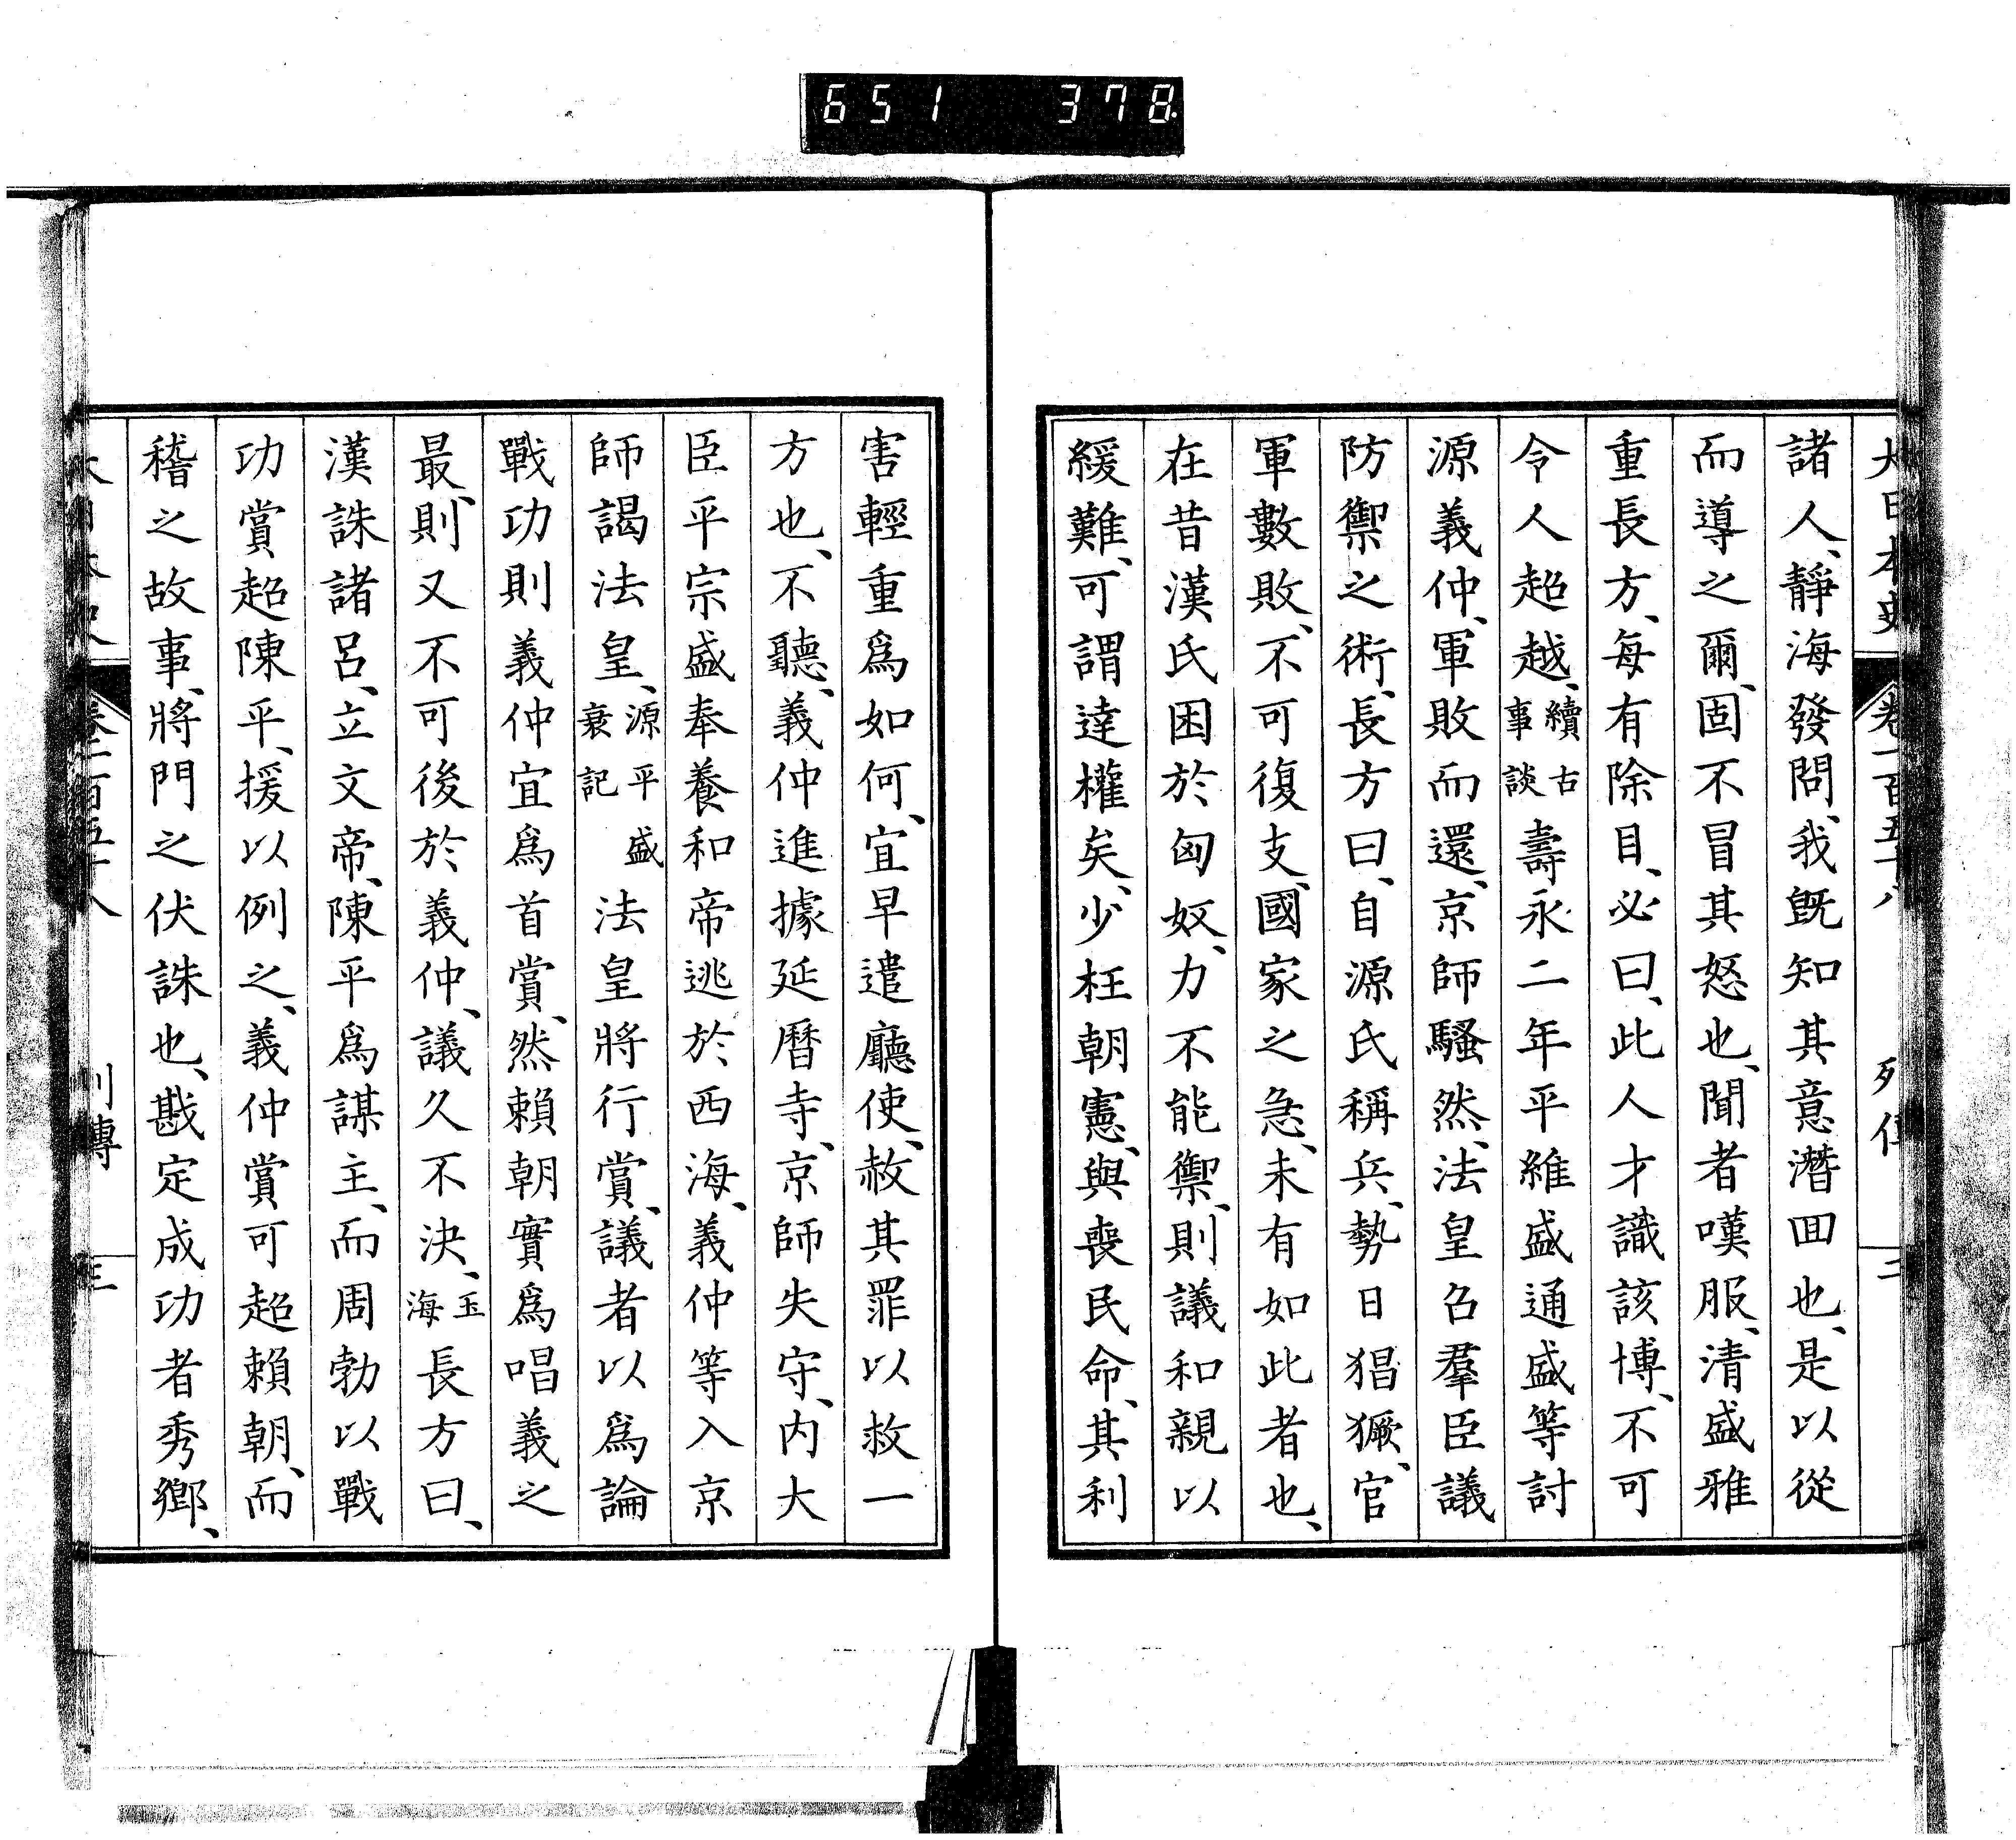 651 378
大日本史 卷一百五十八 列傳 二
諸人、靜海發問、我旣知其意潛回也、是以從
而導之爾、固不冒其怒也、聞者嘆服、清盛雅
重長方、每有除目、必曰、此人才識該博、不可
令人超越、續古事談壽永二年平維盛通盛等討
源義仲、軍敗而還、京師騷然、法皇召羣臣議
防禦之術、長方曰、自源氏稱兵、勢日猖獗、官
軍數敗、不可復支、國家之急、未有如此者也、
在昔漢氏困於匈奴、力不能禦、則議和親以
緩難、可謂達權矣、少枉朝憲、與喪民命、其利
害輕重爲如何、宜早遣廳使、赦其罪以救一
方也、不聽、義仲進據延曆寺、京師失守、內大
臣平宗盛奉養和帝逃於西海、義仲等入京
師謁法皇、源平盛衰記法皇將行賞、議者以爲論
戰功則義仲宜爲首賞、然賴朝實爲唱義之
最、則又不可後於義仲、議久不決、玉海長方曰、
漢誅諸呂、立文帝、陳平爲謀主、而周勃以戰
功賞超陳平、援以例之、義仲賞可超賴朝、而
稽之故事、將門之伏誅也、戡定成功者秀鄉、
大日本史 卷一百五十八 列傳 三